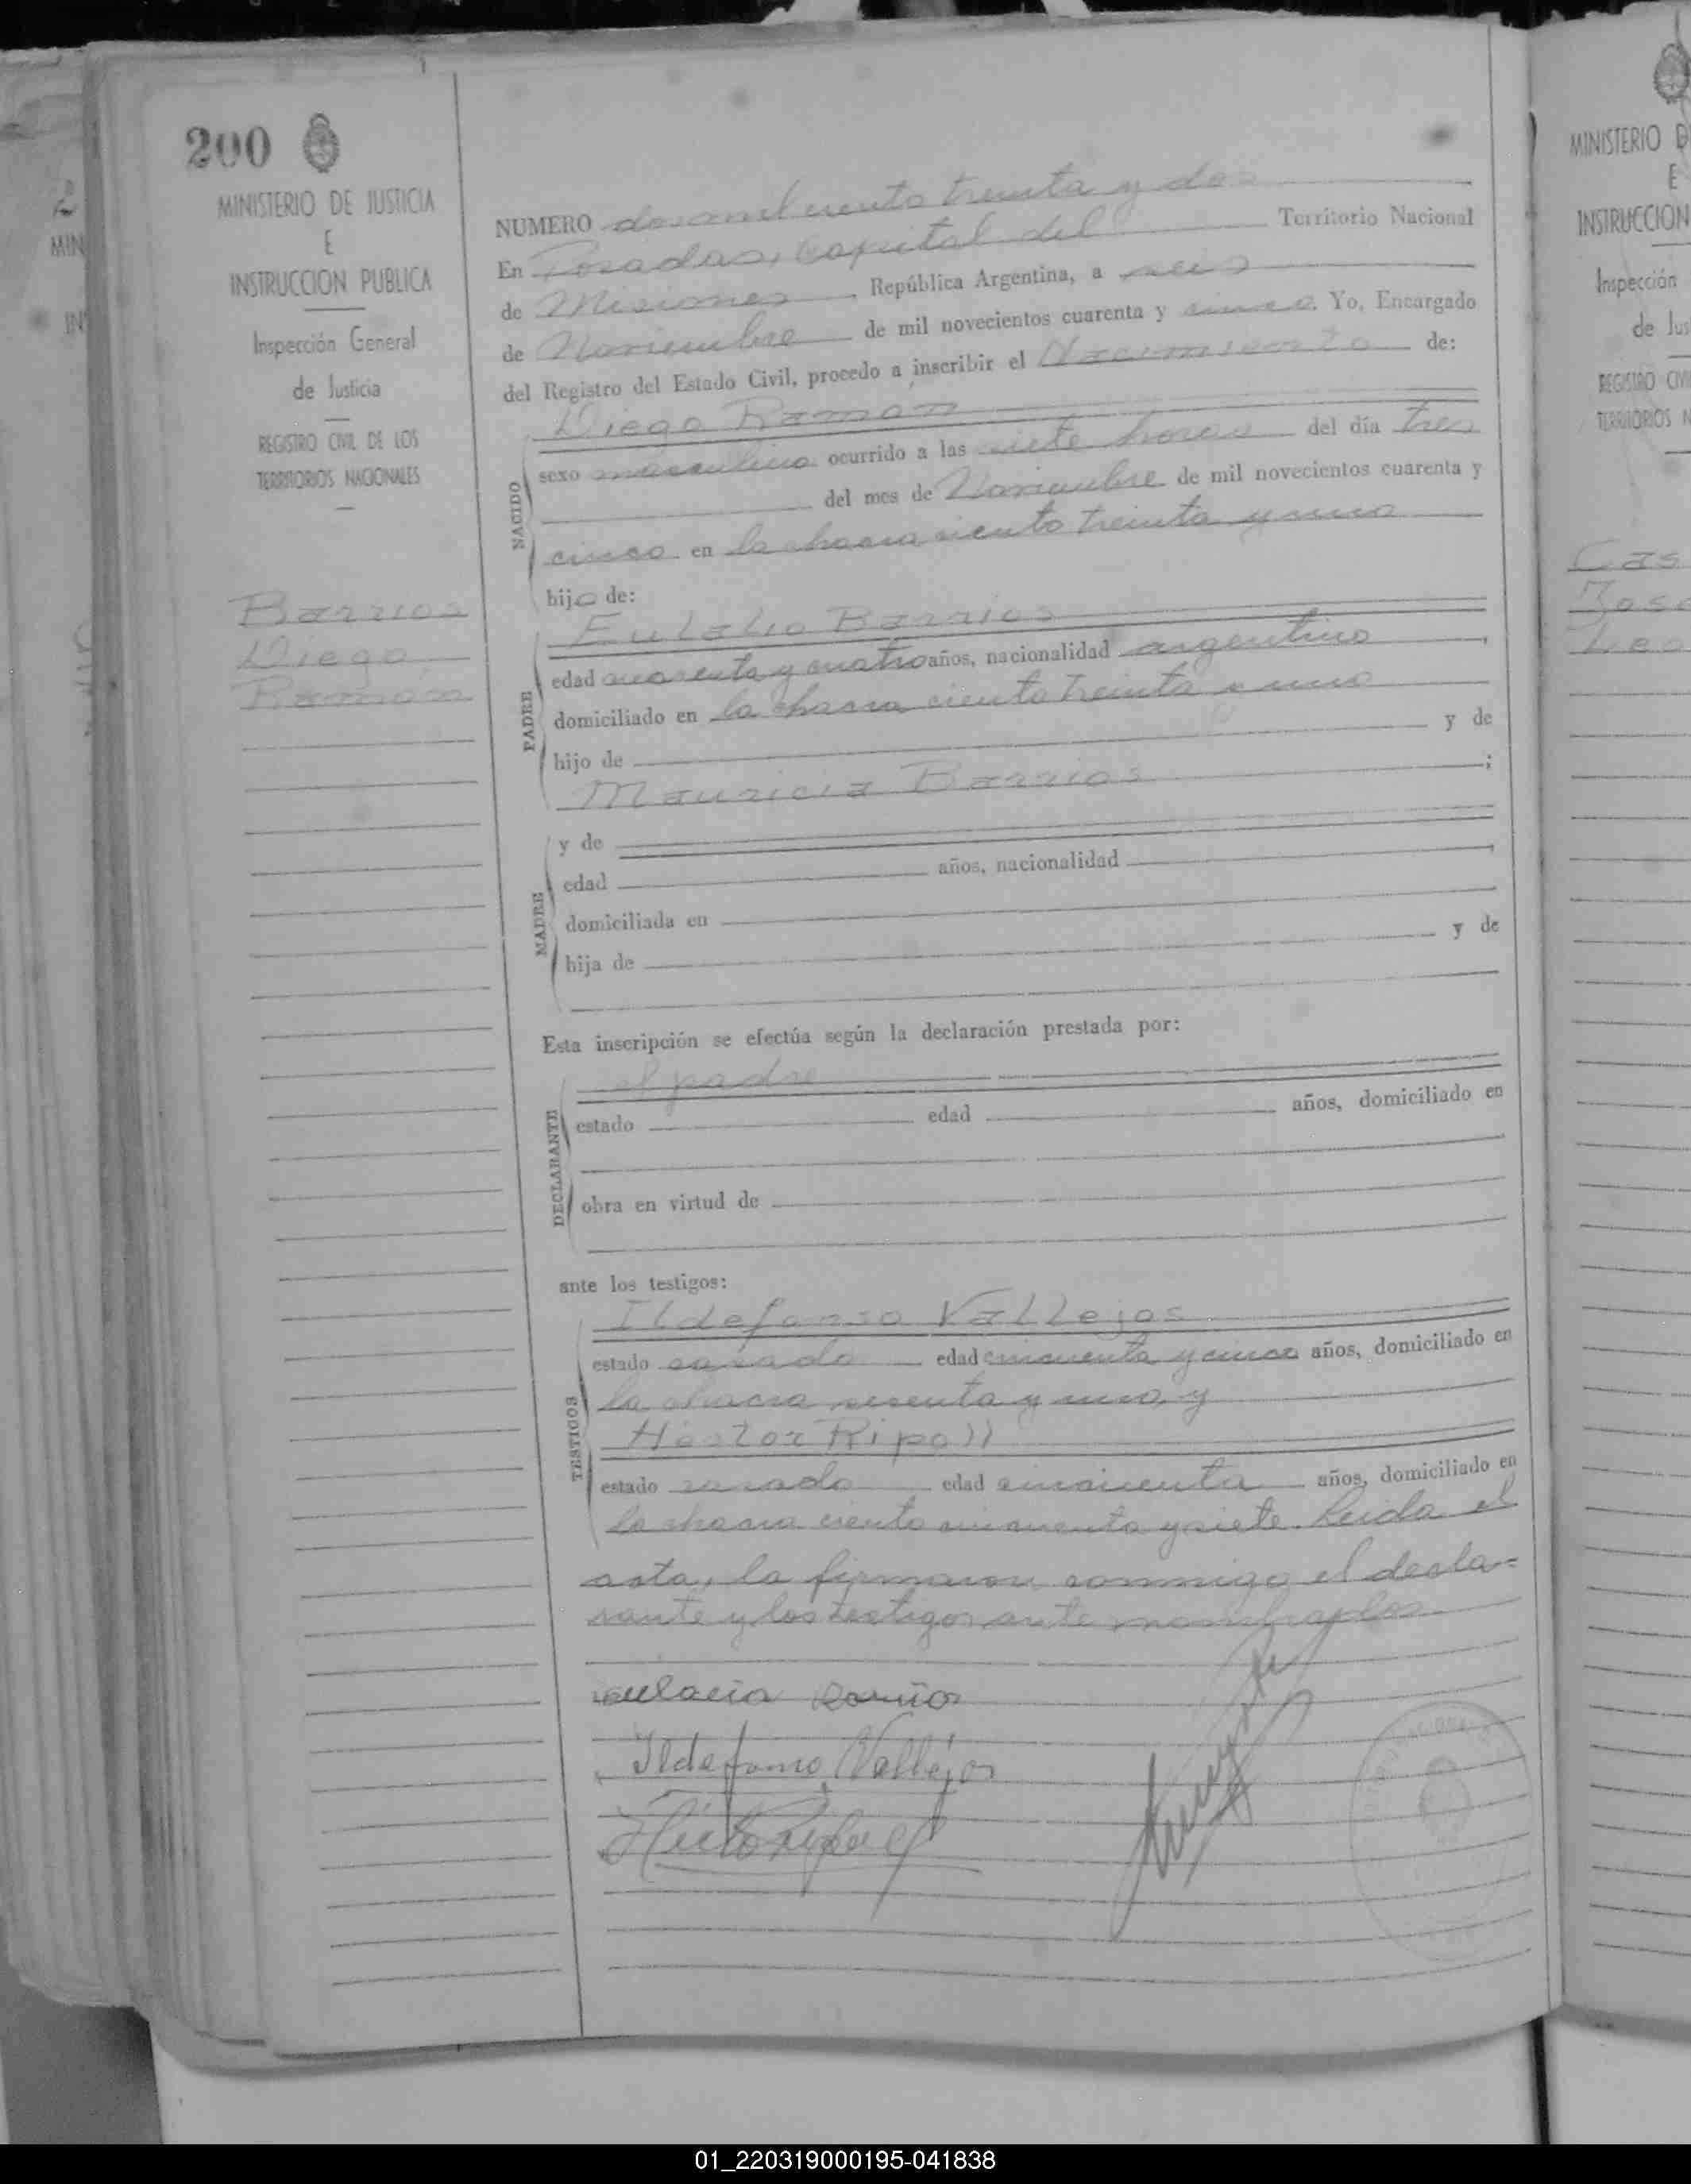 200
MINISTERIO DE JUSTICIA
E
INSTRUCCION PUBLICA
Inspección General
de Justicia
REGISTRO CIVIL DE LOS
TERRITORIOS NACIONALES
Barrios
Diego
Ramón
NUMERO dos mil ciento treinta y dos
En Posadas, Capital del Territorio Nacional
de Misiones, República Argentina, a seis
de Noviembre de mil novecientos cuarenta y cinco. Yo, Encargado
del Registro del Estado Civil, procedo a inscribir el Nacimiento de:
NACIDO
Diego Ramon
sexo masculino ocurrido a las siete horas del día tres
del mes de Noviembre de mil novecientos cuarenta y
cinco en la chacra ciento treinta y uno
hijo de:
PADRE
Eulalio Barrios
edad cuarenta y cuatro años, nacionalidad argentino,
domiciliado en la chacra ciento treinta y uno
hijo de y de
Mauricia Barrios;
MADRE
y de
edad años, nacionalidad,
domiciliada en
hija de y de
Esta inscripción se efectúa según la declaración prestada por:
DECLARANTE
el padre
estado edad años, domiciliado en
obra en virtud de
ante los testigos:
TESTIGOS
Ildefonso Vallejos
estado casado edad cincuenta y cinco años, domiciliado en
la chacra sesenta y uno, y
Héctor Ripoll
estado casado edad cincuenta años, domiciliado en
la chacra ciento cincuenta y siete. Leida el
acta, la firmaron conmigo el decla=
rante y los testigos ante nombrados.
Barrios
Ildefonso Vallejos
MINISTERIO D
E
INSTRUCCION
Inspección
de Jus
REGISTRO CIVI
TERRITORIOS N
Cas
Jose
Leo
01_220319000195-041838